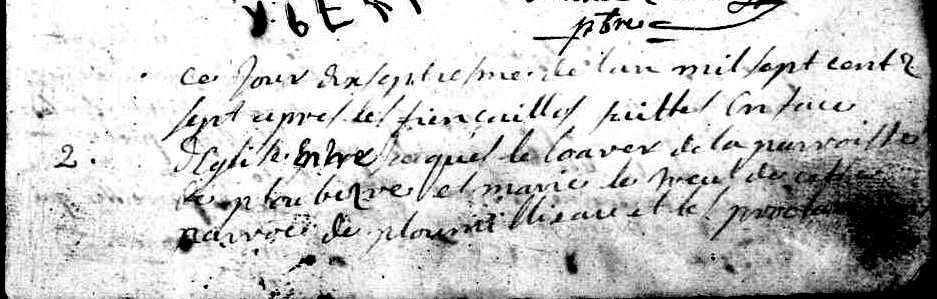 ptre
ce jour dixseptiesme de lan mil sept cent
sept apres les fiençailles faittes en face
2. deglise Entre jacques le de la parroisse
de ploubezre et marie le de cette
parroès de ploumilliau et les